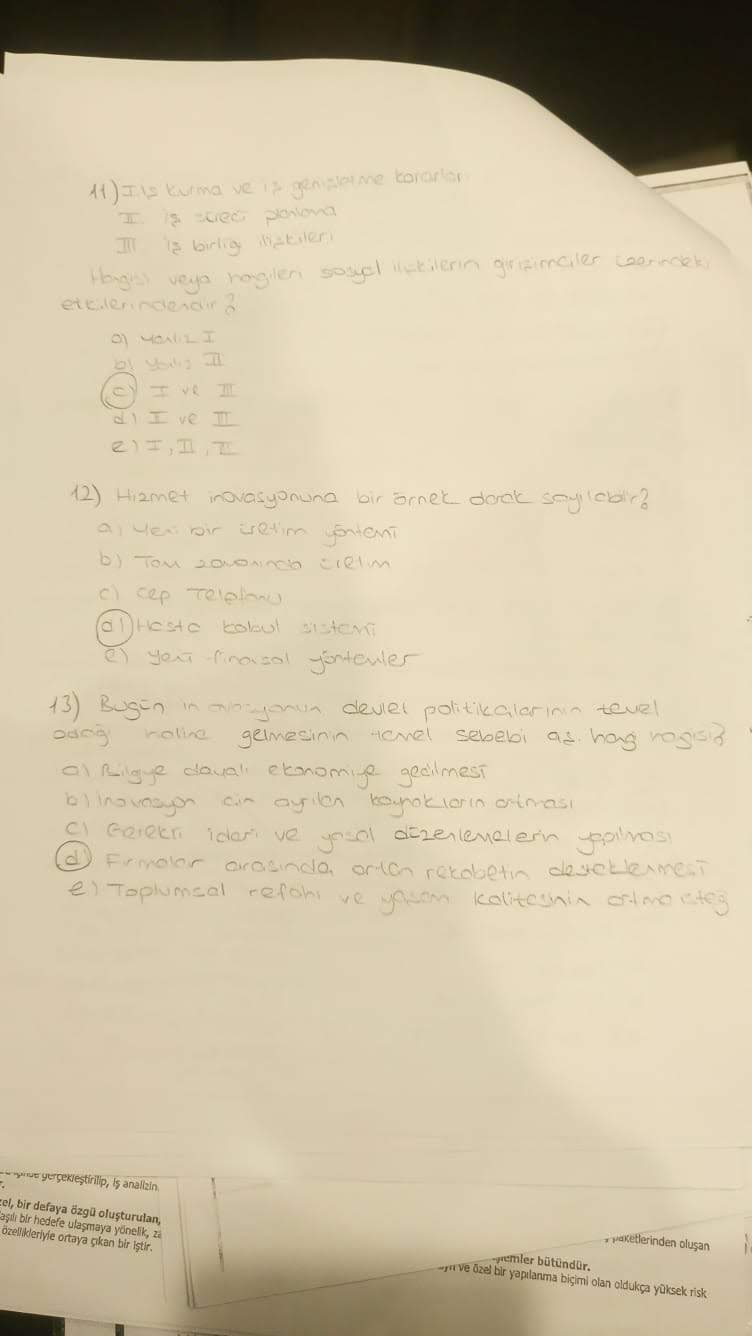 11) I İş kurma ve iş genişletme kararları
II iş süreci planlama
III iş birliği ilişkileri
Hangisi veya hangileri sosyal ilişkilerin girişimciler üzerindeki
etkilerindendir?
a) yanlız I
b) yanlız II
c) I ve III
d) I ve II
e) I, II, III
12) Hizmet inovasyonuna bir örnek olarak sayılabilir?
a) yeni bir üretim yöntemi
b) Tam zamanında üretim
c) Cep Telefonu
d) Hasta kabul sistemi
e) yeni finansal yöntemler
13) Bugün inovasyonun devlet politikalarının temel
odağı haline gelmesinin temel sebebi aş. hangisi?
a) Bilgiye dayalı ekonomiye geçilmesi
b) İnovasyon için ayrılan kaynakların artması
c) Gerekli idari ve yasal düzenlemelerin yapılması
d) Firmalar arasında, artan rekabetin desteklenmesi
e) Toplumsal refahı ve yaşam kalitesinin artma isteği
gerçekleştirilip, iş analizin
zel, bir defaya özgü oluşturulan,
aşılı bir hedefe ulaşmaya yönelik, za
özellikleriyle ortaya çıkan bir iştir.
paketlerinden oluşan
emler bütündür.
ve özel bir yapılanma biçimi olan oldukça yüksek risk